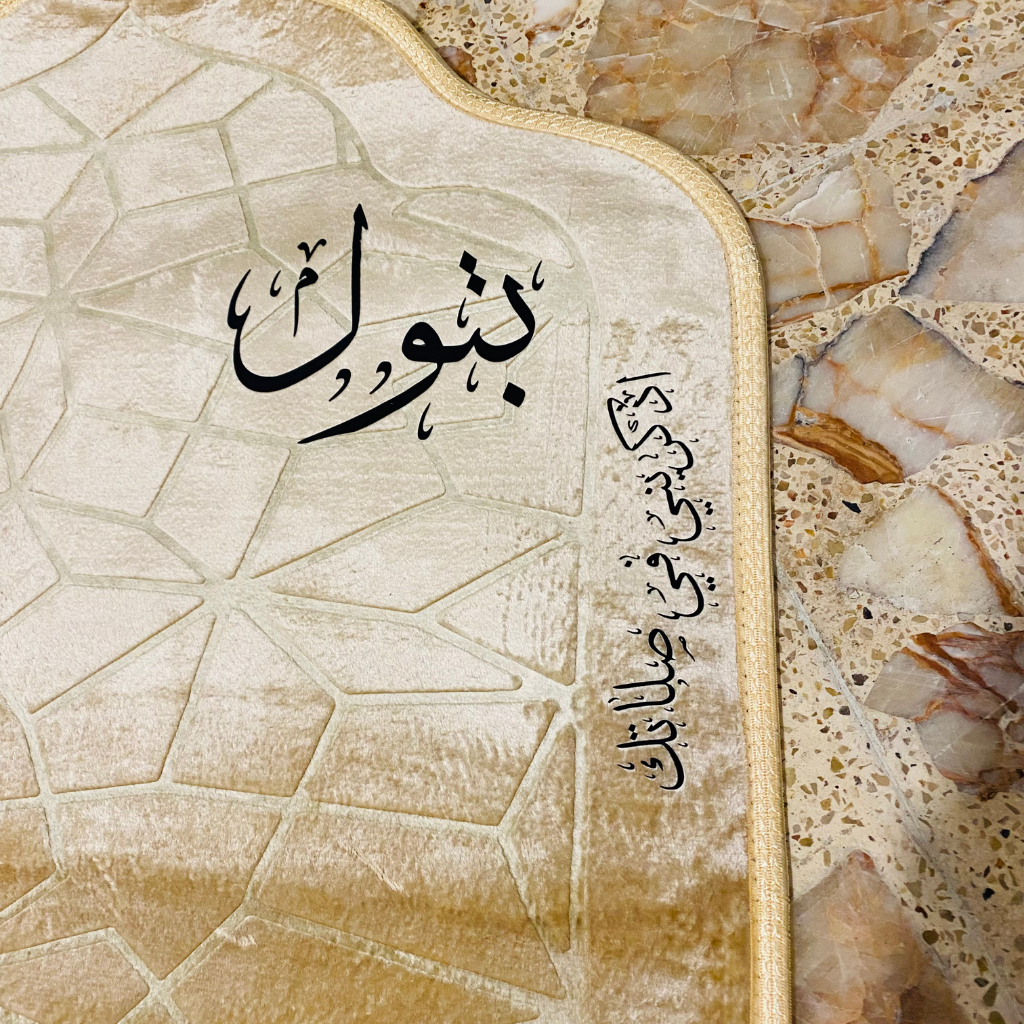 بتول
اذكريني في صلاتك